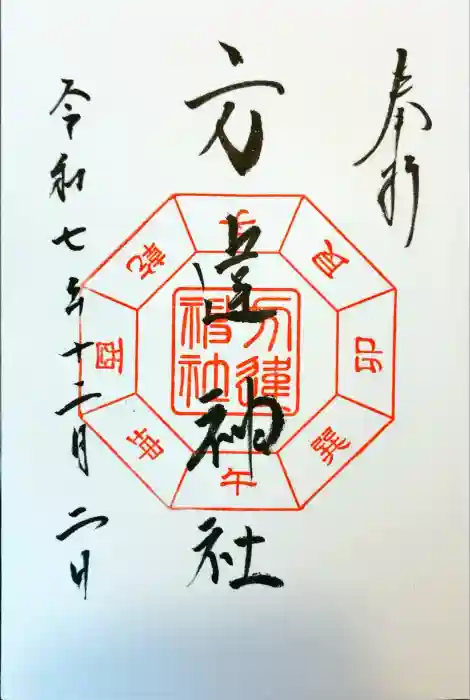 奉拝
方違神社
令和七年十二月二日
方違
神社
艮
卯
巽
午
坤
酉
乾